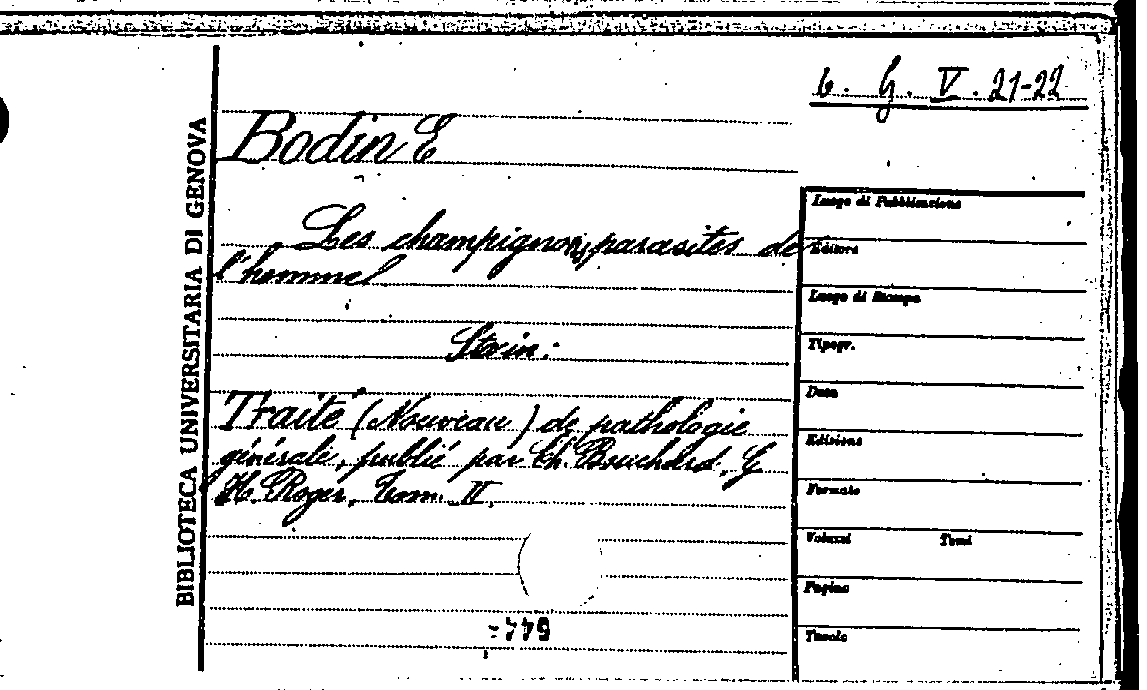 6. G. V. 21-22
BIBLIOTECA UNIVERSITARIA DI GENOVA
Bodin E
Les champignons parasites de
l'homme
Sta in:
Traité (Nouveau) de pathologie
générale, publié par Ch. Bouchard, G
H. Roger. Tom. II.
Luogo di Pubblicazione
Editore
Luogo di Stampa
Tipogr.
Data
Edizione
Formato
Volumi Tomi
Pagine
Tavole